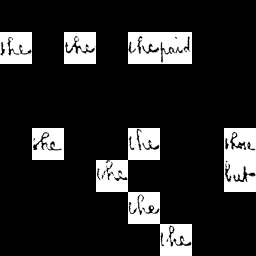 the the the paid
the the those
the but
the
the